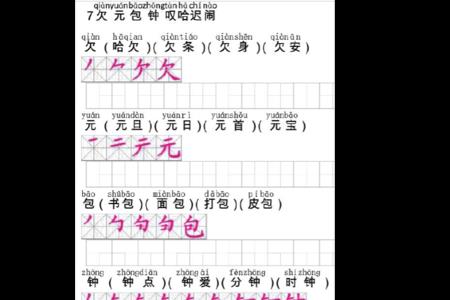 qiànyuánbāozhōngtànhāchínào
7欠 元 包 钟 叹哈迟闹
qiàn hāqian qiàntiáo qiànshēn qiànān
欠 (哈 欠 )( 欠 条 )( 欠 身 )( 欠 安 )
yuán yuándàn yuánrì yuánshǒu yuánbǎo
元 ( 元 旦 )( 元 日 )( 元 首 )( 元 宝 )
bāo shūbāo miànbāo dǎbāo píbāo
包 ( 书包 )( 面 包 )(打包 )(皮包 )
zhōng zhōngdiǎn zhōngài fēnzhōng shízhōng
钟 ( 钟 点 )( 钟 爱 )( 分 钟 )( 时 钟 )